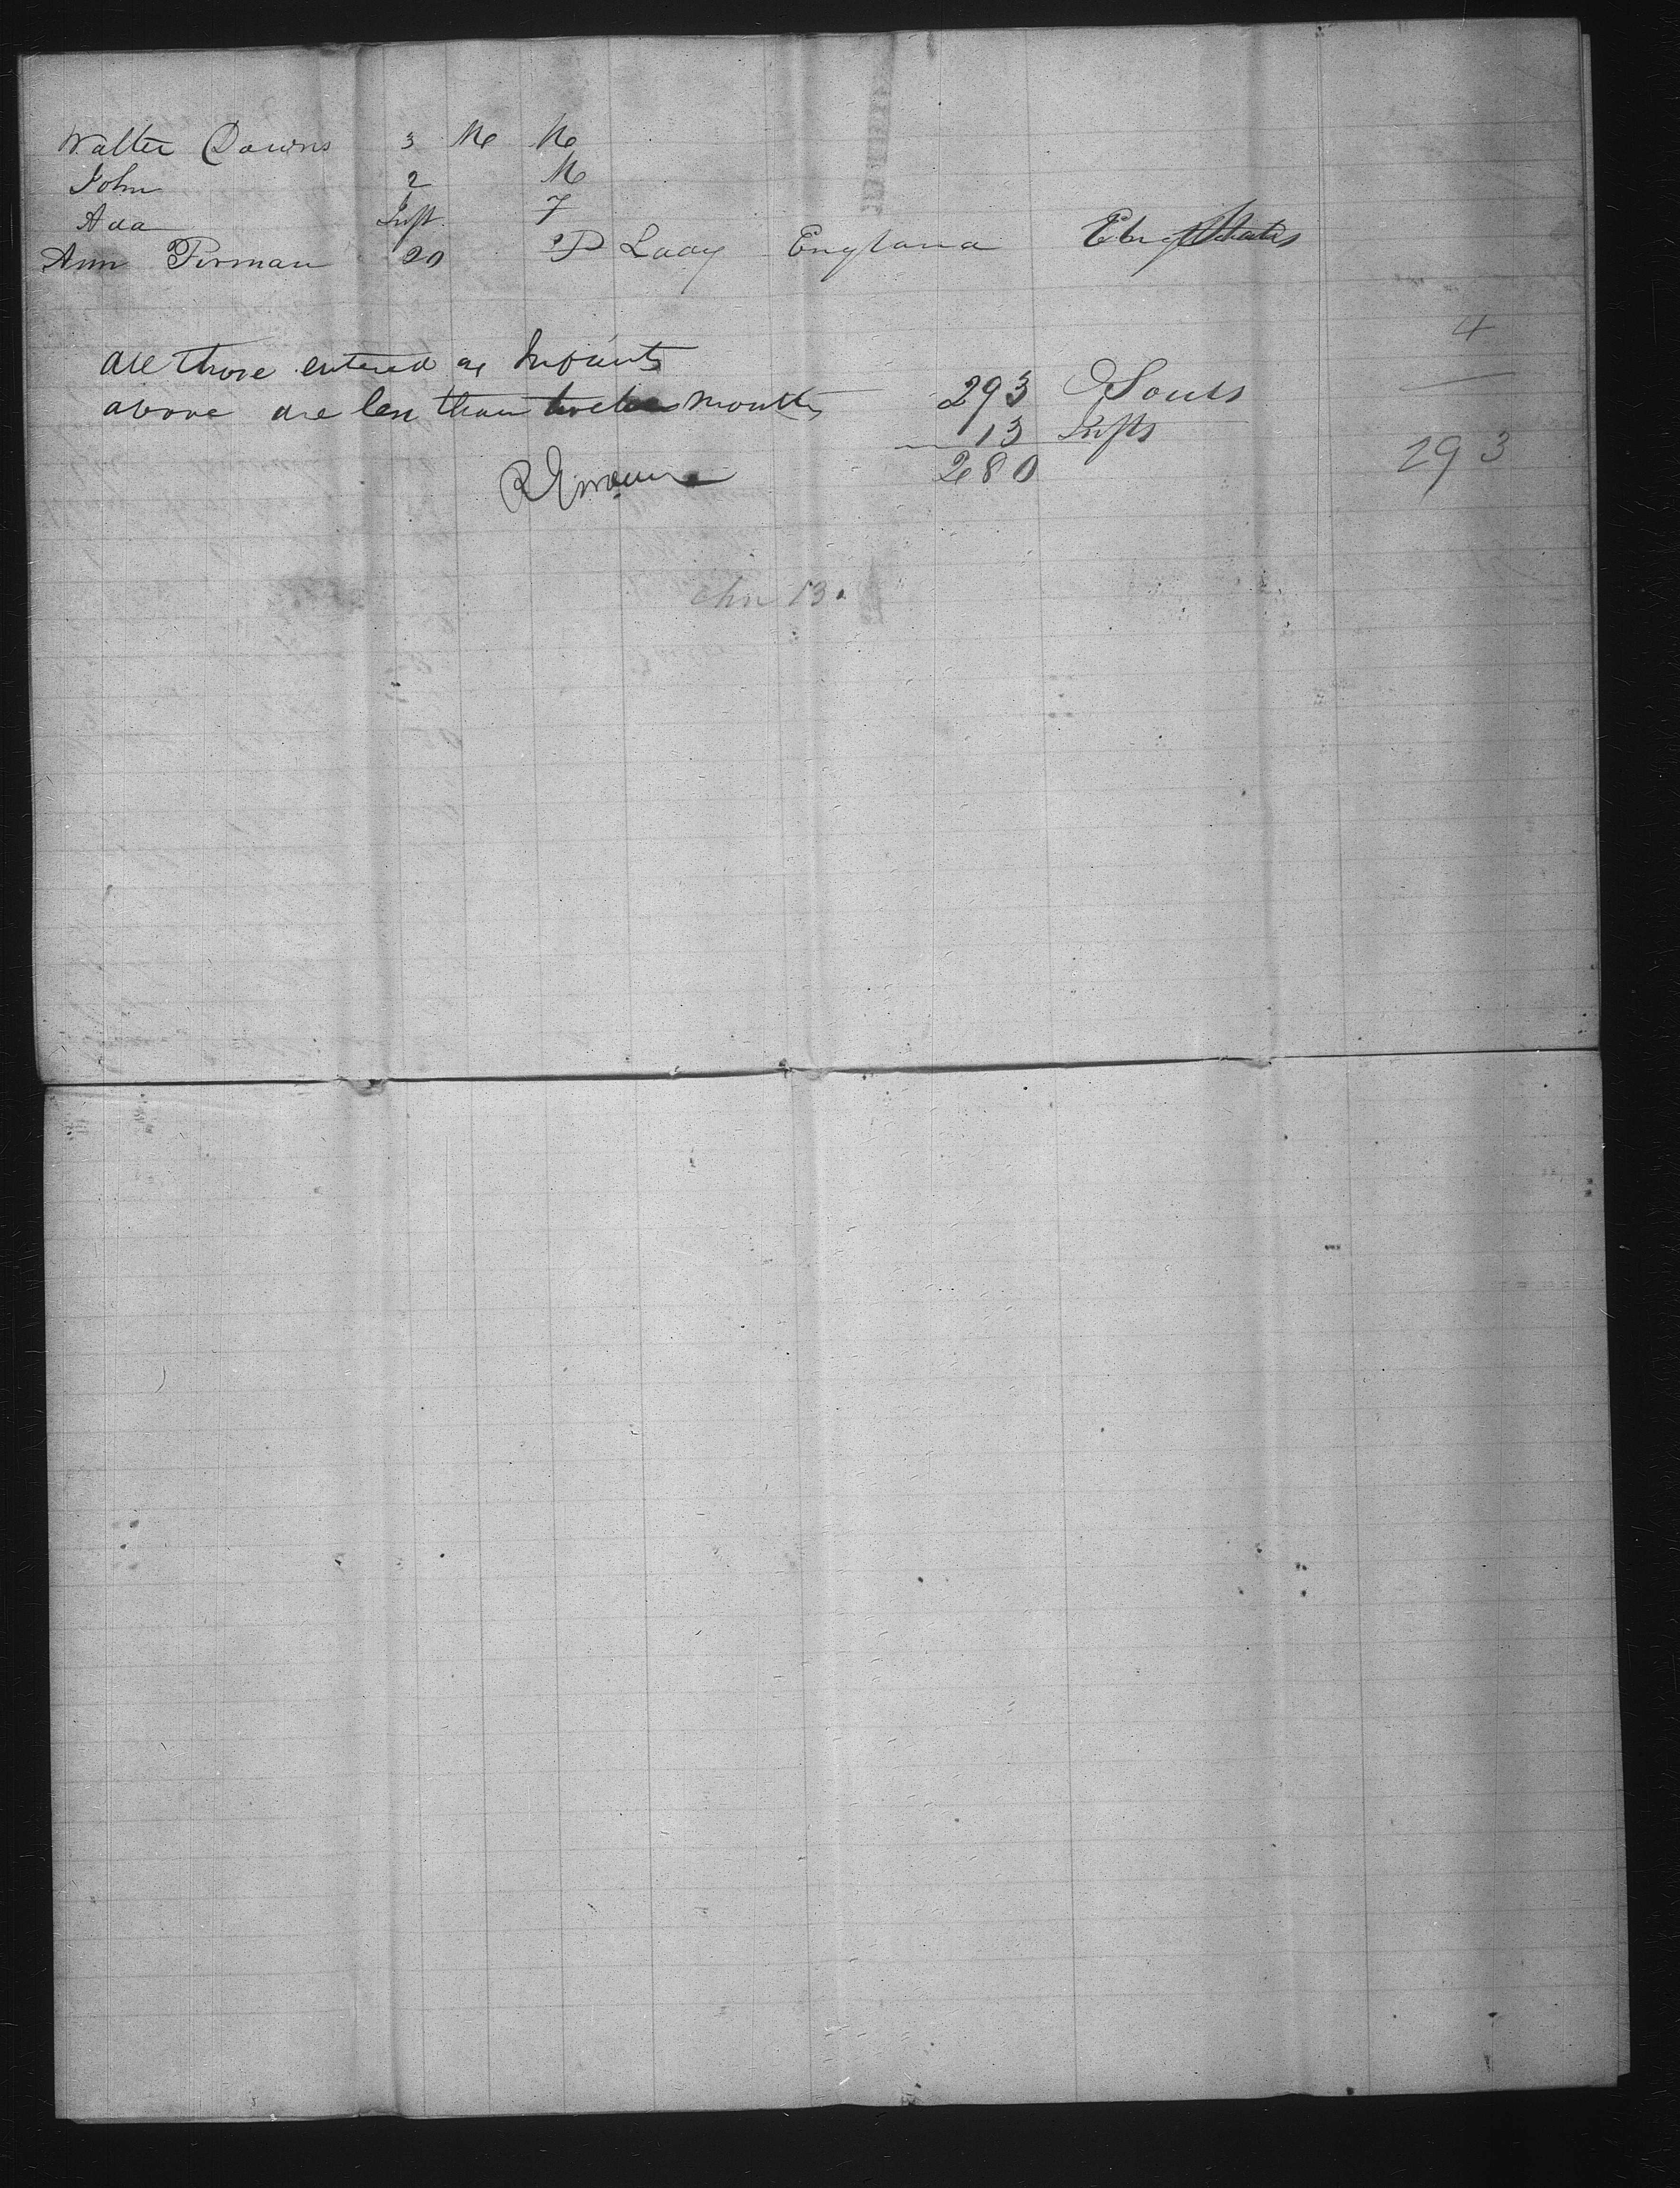 Walter Downs 3 M M
John 2 M
Ada Inft. F
Ann Firman 20 F Lady England States
4
All those entered as Infants
above are less than twelve months
293 Souls
13 Infts
280
293
chn 13.